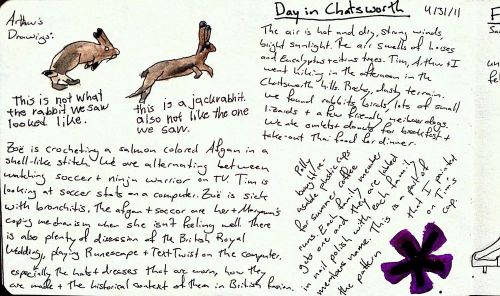 Arthur's
Drawings:
This is not what
the rabbit we saw
looked like.
this is a jackrabbit.
also not like the one
we saw.
Zoë is crocheting a salmon colored Afgan in a
shell-like stitch. We are alternating between
watching soccer + ninja warrior on TV. Tim is
looking at soccer stats on a computer. Zoë is sick
with bronchitis. The afgan + soccer are her + Maryam's
coping mechanism when she isn't feeling well. There
is also plenty of discussion of the British Royal
Wedding, playing Runescape + Text Twist on the computer.
especially the hats + dresses that are worn, how they
are made + the historical context of them in British
Day in Chatsworth 4/31/11
The air is hot and dry, strong winds,
bright sunlight. The air smells of horses
and eucalyptus + citrus trees. Tim, Arthur + I
went hiking in the afternoon in the
Chatsworth hills. Rocky, dusty terrain.
We found rabbits, birds, lots of small
lizards + a few friendly neighbor dogs.
We ate omlets + donuts for breakfast +
take-out Thai food for dinner.
Polly
bought re-
usable plastic cups
for summer coffee
runs. Each family member
gets one and they are labled
in nail polish with each family
members name. This is a part of
the pattern that I painted
on Tim's
cup.